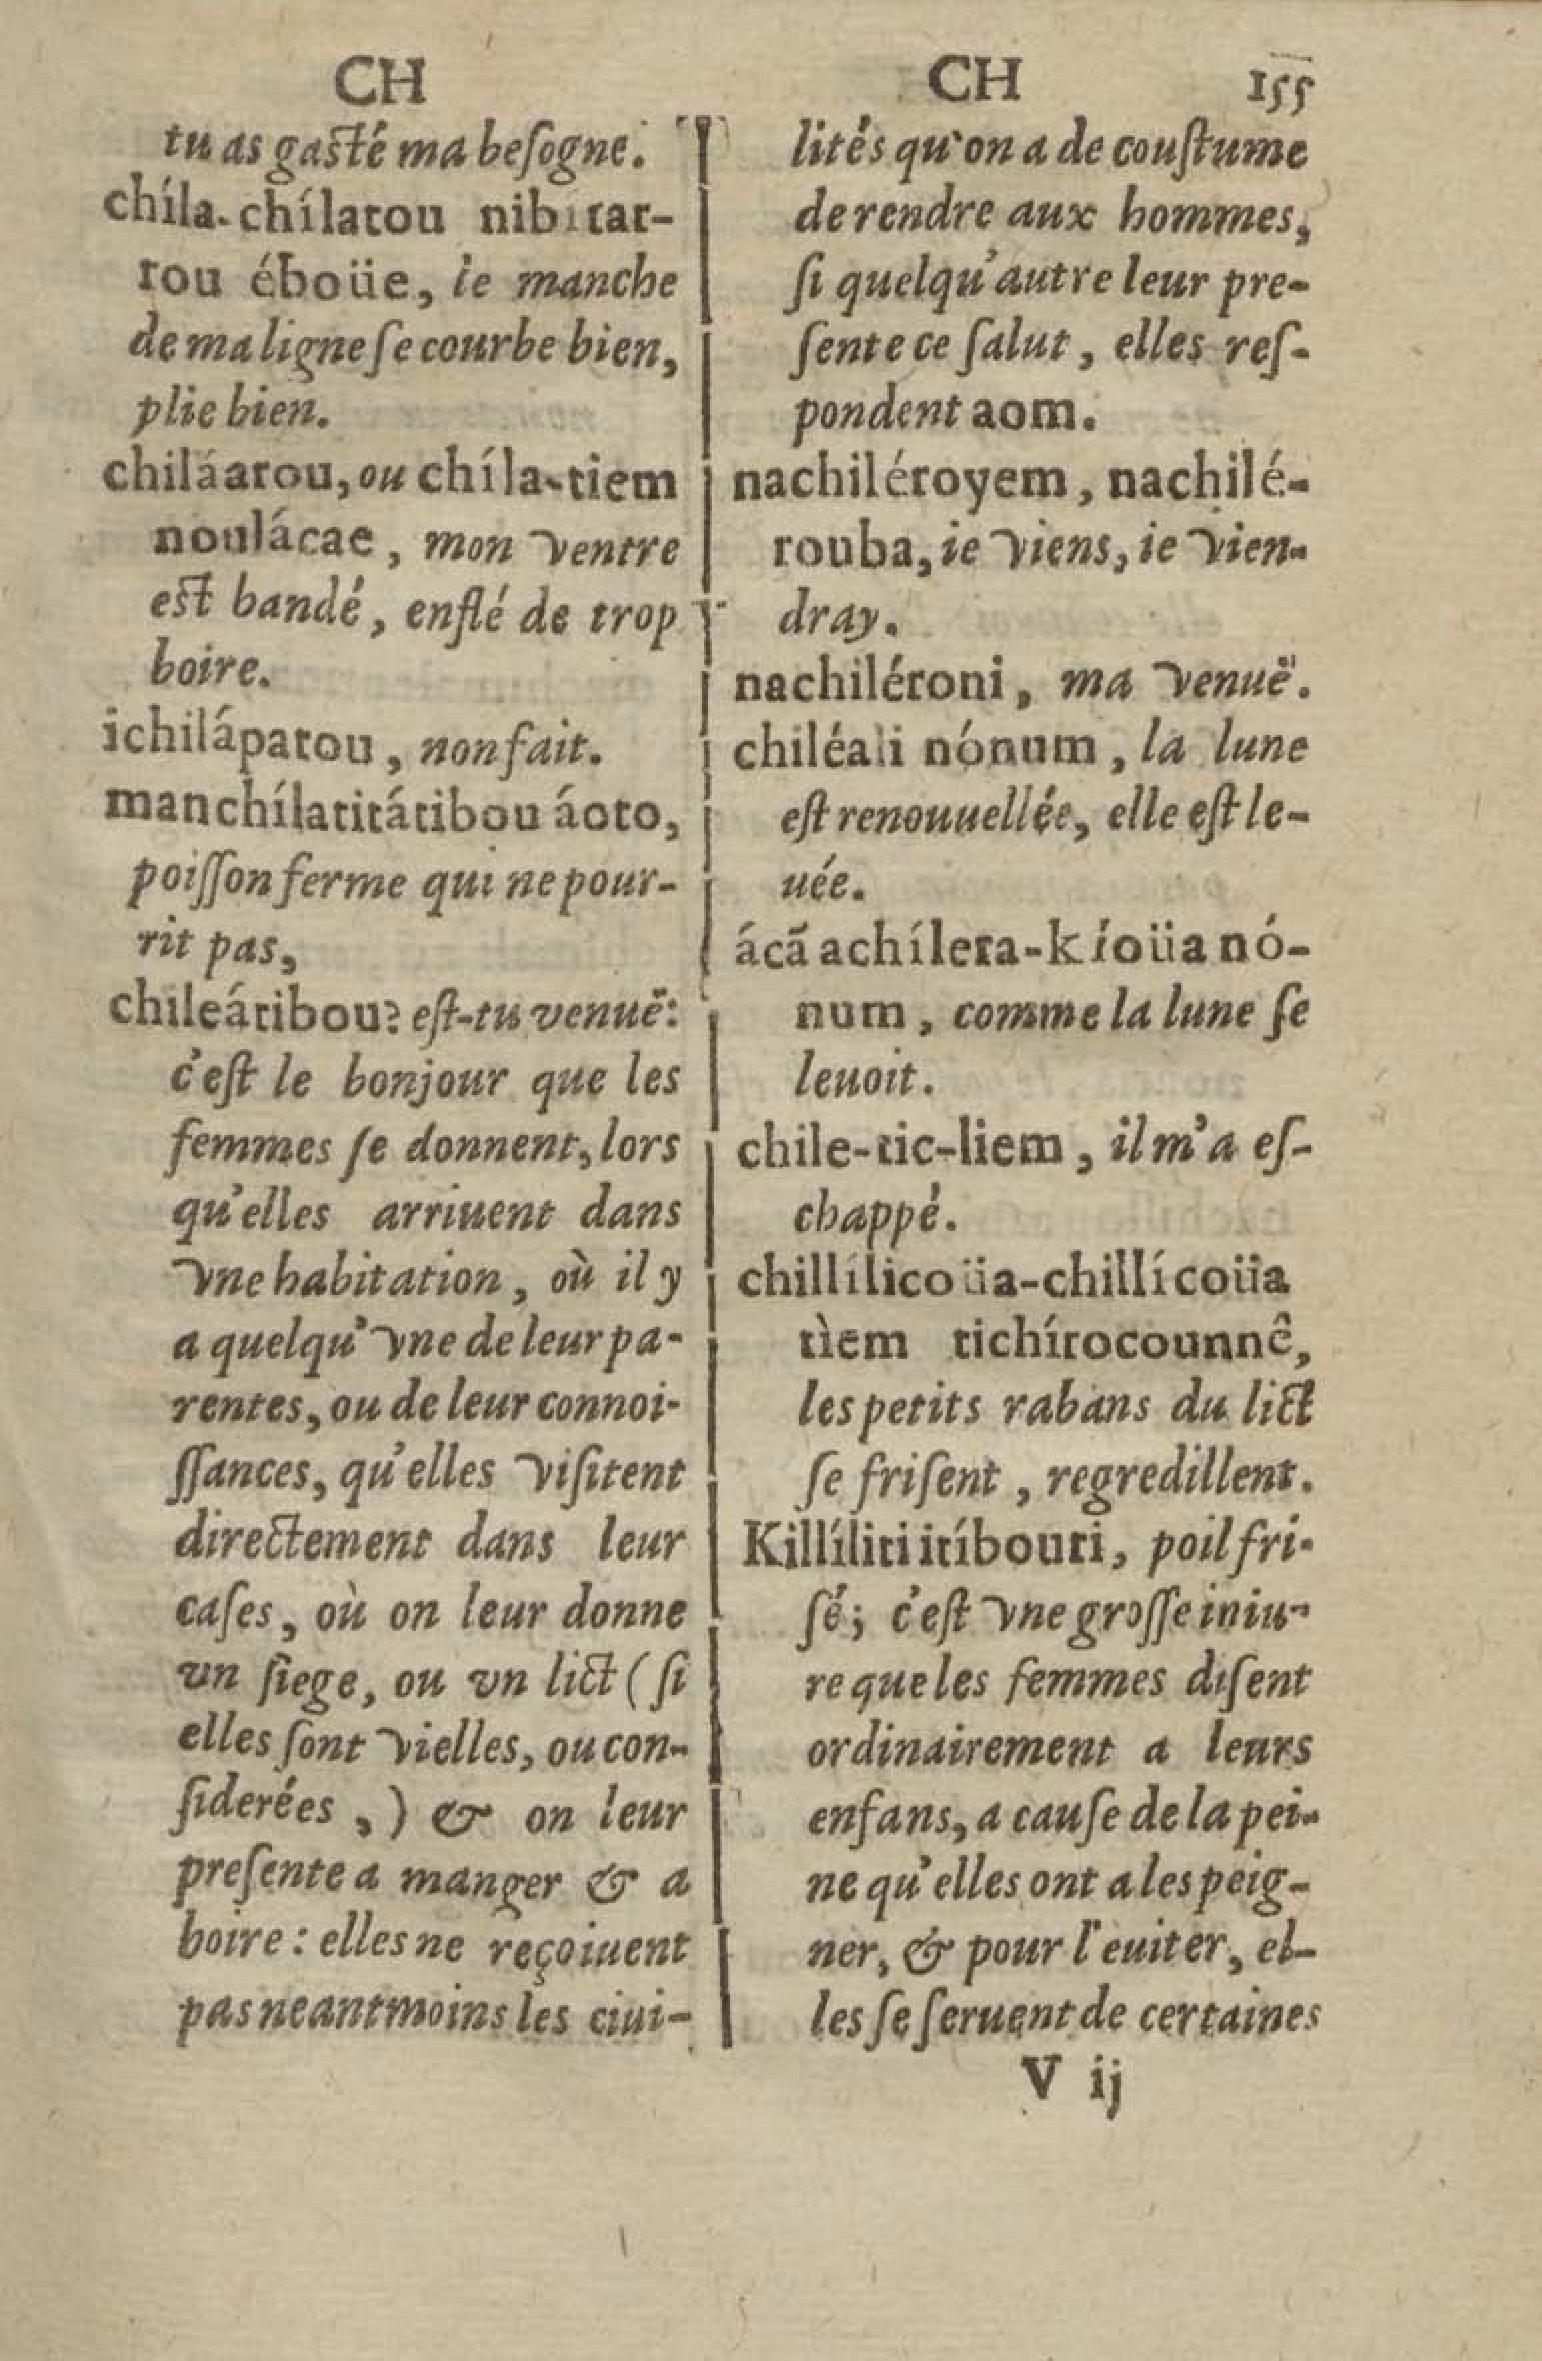 CH
tu as gasté ma beſogne.
chíla-chílatou nibitat-
tou éboüe, le manche
de ma ligne ſe courbe bien,
plie bien.
chiláatou, ou chíla-tiem
noulácae, mon ventre
est bandé, enflé de trop
boire.
ichilápatou, non fait.
manchílatitátibou áoto,
poiſſon ferme qui ne pour-
rit pas,
chileátibou? eſt-tu venuë:
c'eſt le bonjour que les
femmes ſe donnent, lors
qu'elles arriuent dans
vne habitation, où il y
a quelqu'vne de leur pa-
rentes, ou de leur connoi-
ſſances, qu'elles viſitent
directement dans leur
caſes, où on leur donne
vn ſiege, ou vn lict (ſi
elles ſont vielles, ou con-
ſiderées,) & on leur
preſente a manger & a
boire: elles ne reçoiuent
pas neantmoins les ciui-
CH 155
lités qu'on a de couſtume
de rendre aux hommes,
ſi quelqu'autre leur pre-
ſente ce ſalut, elles reſ-
pondent aom.
nachiléroyem, nachilé-
rouba, ie viens, ie vien-
dray.
nachiléroni, ma venuë.
chiléali nónum, la lune
eſt renouuellée, elle eſt le-
uée.
ácã achílera-kíoüa nó-
num, comme la lune ſe
leuoit.
chile-tic-liem, il m'a eſ-
chappé.
chillílicoüa-chillícoüa
tìem tichírocounnê,
les petits rabans du lict
ſe friſent, regredillent.
Killíliti itíbouri, poil fri-
ſé; c'eſt vne groſſe iniu-
re que les femmes diſent
ordinairement a leurs
enfans, a cauſe de la pei-
ne qu'elles ont a les peig-
ner, & pour l'euiter, el-
les ſe ſeruent de certaines
V ij